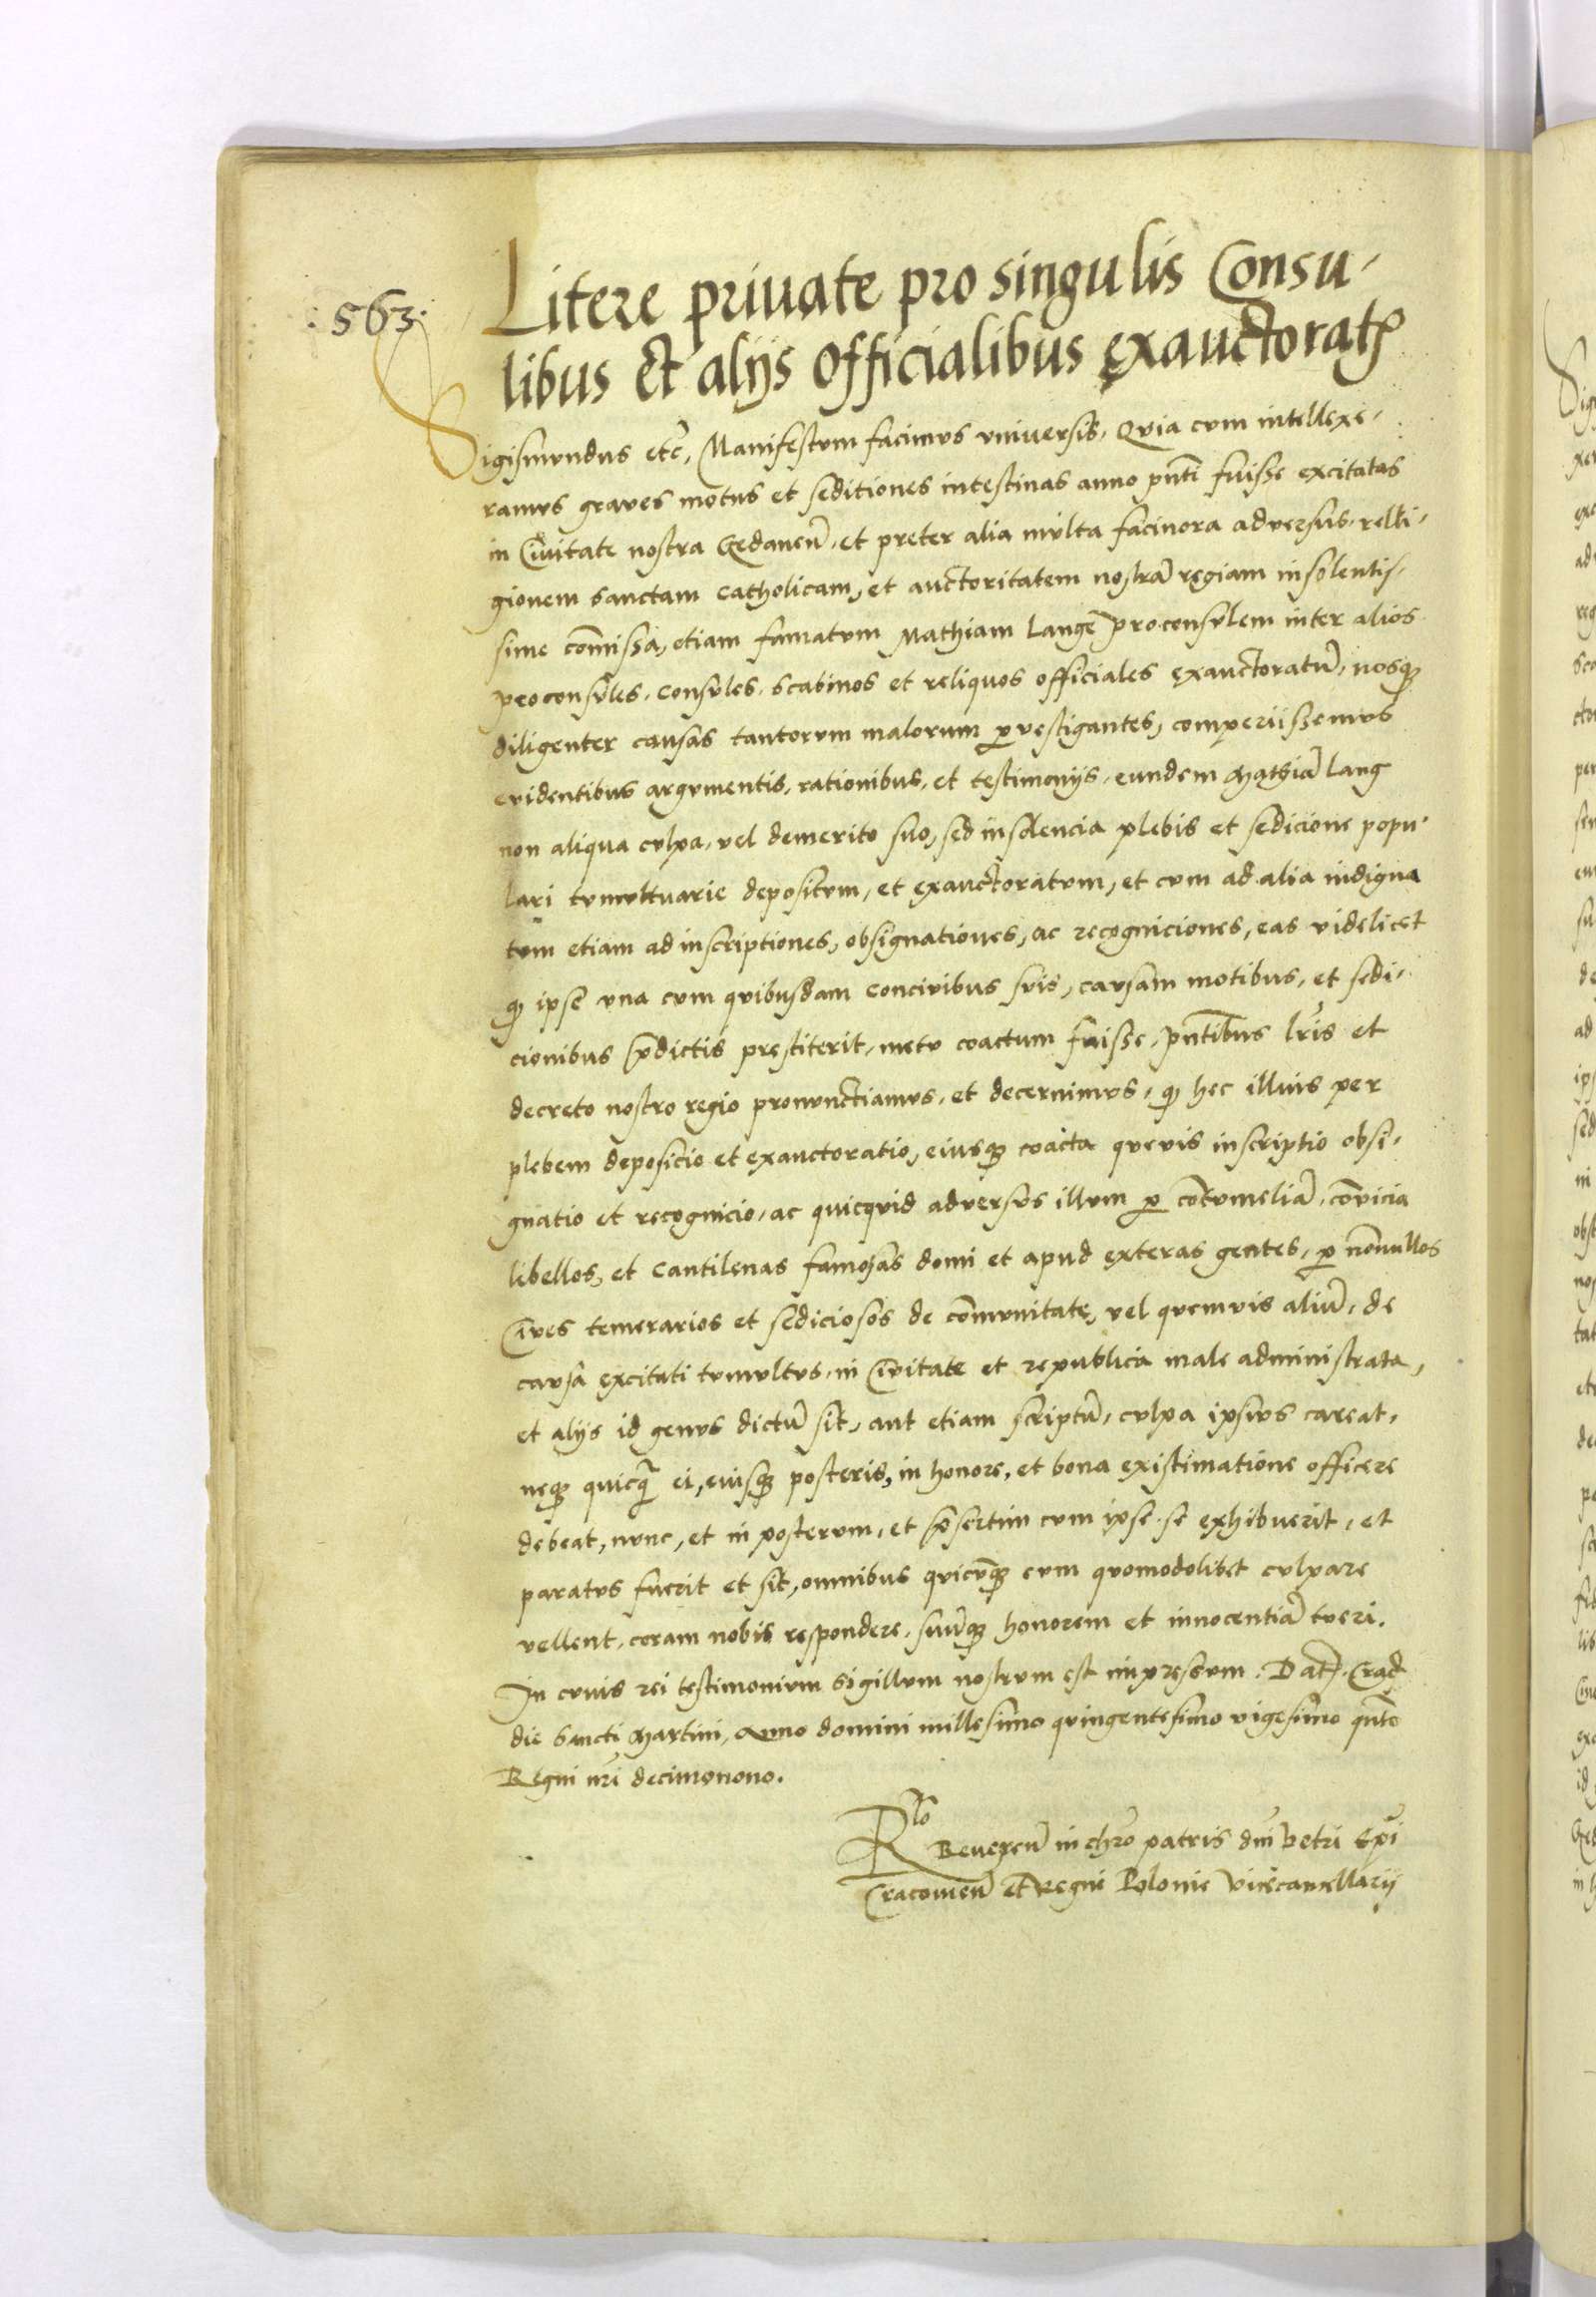 .563.
Litere priuate pro singulis Consu-
libus et alijs officialibus exauctorat̃
Sigismundus etc̃, Manifestum facimus vniuersis, Quia cum intellexe-
ramus graues motus et seditiones intestinas anno pñti fuisse excitatas
in Ciuitate nostra Gedaneñ, et preter alia multa facinora aduersus relli-
gionem sanctam catholicam, et auctoritatem nostrã regiam insolentis-
sime com̃issa, etiam famatum Mathiam Langẽ proconsulem inter alios
proconsules, consules, scabinos et reliquos officiales exauctoratũ, nosq3
diligenter causas tantorum malorum p̱uestigantes, comperiissemus
euidentibus argumentis, rationibus, et testimonijs, eundem Mathiã Lang
non aliqua culpa, vel demerito suo, sed insolencia plebis et sedicione popu-
lari tumultuarie depositum, et exauctoratum, et cum ad alia indigna
tum etiam ad inscriptiones, obsignationes, ac recogniciones, eas videlicet
q3 ipse vna cum quibusdam conciuibus suis, causam motibus, et sedi-
cionibus p̃dictis prestiterit, metu coactum fuisse, pñtibus lr̃is et
decreto nostro regio pronunctiamus, et decernimus, q3 hec illius per
plebem deposicio et exauctoratio, eiusq3 coacta queuis inscriptio obsi-
gnatio et recognicio, ac quicquid aduersus illum p̱ contumeliã, cõuicia
libellos, et cantilenas famosas domi et apud exteras gentes, p̱ nõnullos
Ciues temerarios et sediciosos de com̃unitate, vel quemuis aliũ, de
causa excitati tumultus, in Ciuitate et republica male administrata,
et alijs id genus dictũ sit, aut etiam scriptũ, culpa ipsius careat,
neq3 quicq̃ ei, eiusq3 posteris, in honore, et bona existimatione officere
debeat, nunc, et in posterum, et p̃sertim cum ipse se exhibuerit, et
paratus fuerit et sit, omnibus quicũq3 eum quomodolibet culpare
vellent, coram nobis respondere, suũq3 honorem et innocentiã tueri.
In cuius rei testimonium sigillum nostrum est impressum. Dat̃ Crac̃
die Sancti Martini, Anno domini millesimo quingentesimo vigesimo qñto
Regni nr̃i decimonono.
Rlo
Reuereñ in chr̃o patris dñi Petri Ep̃i
Cracouieñ et Regni Polonie vicecancellarij